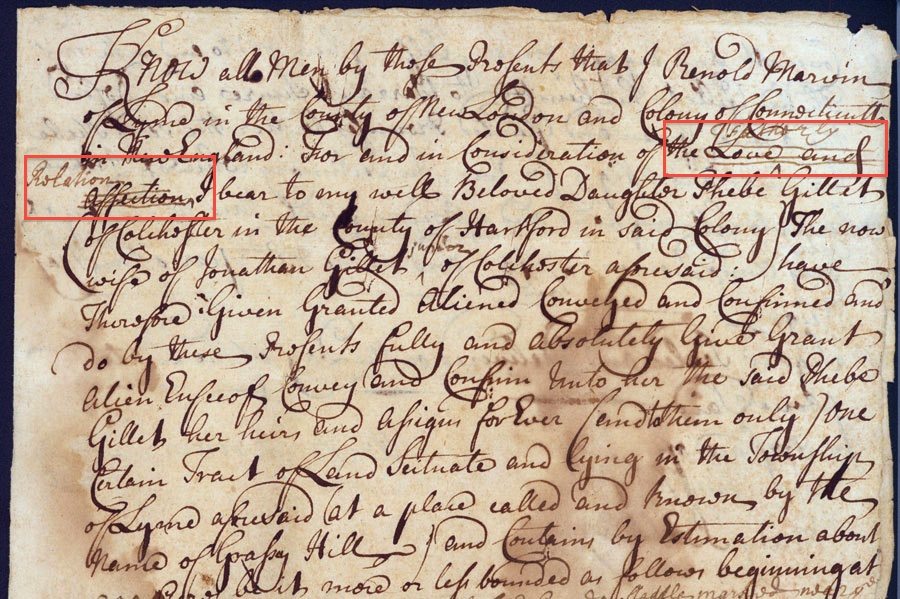 Know all Men by these Presents that I Renold Marvin
of Lyme in the County of New London and Colony of Connecticutt
in New England: For and in Consideration of the Fatherly Love and
Relation affection, I bear to my well Beloved Daughter Phebe Gillet
(of Colchester in the County of Hartford in said Colony) The now
wife of Jonathan Gillet junior of Colchester aforesaid: have
Therefore Given Granted Aliened Conveyed and Confirmed and
do by these Presents fully and absolutely Give Grant
Alien Enfeof Convey and Confirm Unto her the said Phebe
Gillet her heirs and assigns forEver (and to them only) One
Certain Tract of Land Scituate and lying in the Township
of Lyme aforesaid at a place called and known by the
Name of Grassy Hill and Contains by Estimation about
be it more or less bounded as follows beginning at
marked near ye